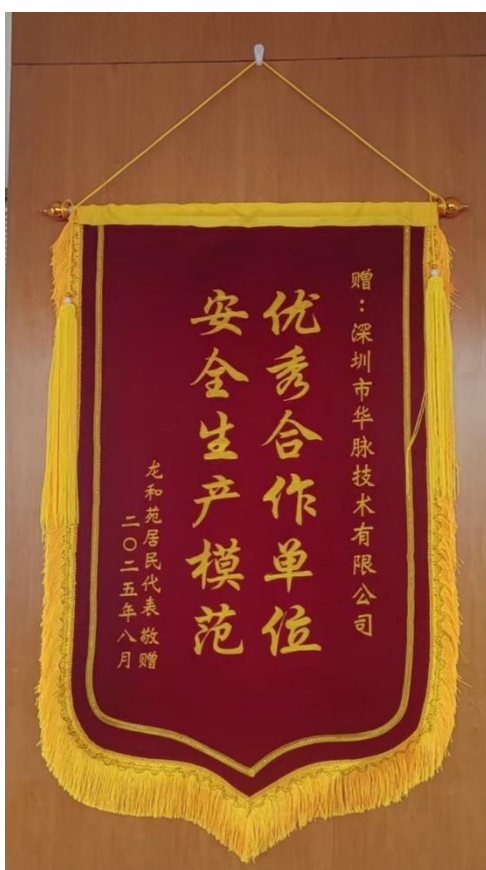 赠：深圳市华脉技术有限公司
优秀合作单位
安全生产模范
龙和苑居民代表 敬赠
二〇二五年八月